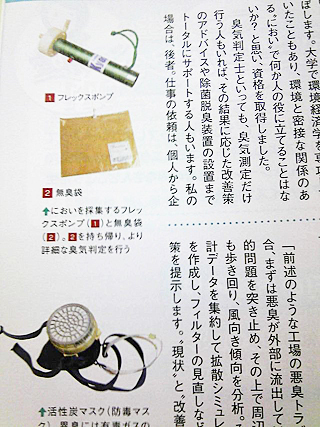 ぼします。大学で環境経済学を専攻
いたこともあり、環境と密接な関係のあ
る“におい”で何か人の役に立てることはな
いか?と思い、資格を取得しました。
臭気判定士といっても、臭気測定だけ
行う人もいれば、その結果に応じた改善策
のアドバイスや除菌脱臭装置の設置まで
トータルにサポートする人もいます。私の
場合は、後者。仕事の依頼は、個人から企
1 フレックスポンプ
2 無臭袋
↑においを採集するフレ
ックスポンプ(1)と無臭袋
(2)。2を持ち帰り、より
詳細な臭気判定を行う
「前述のような工場の悪臭トラ
合、まずは悪臭が外部に流出して
的問題を突き止め、その上で周辺
も歩き回り、風向き傾向を分析。
計データを集約して拡散シミュレ
を作成し、フィルターの見直しなど
策を提示します。“現状”と“改善
↑活性炭マスク(防毒マス
ク)。異臭には有毒ガスの